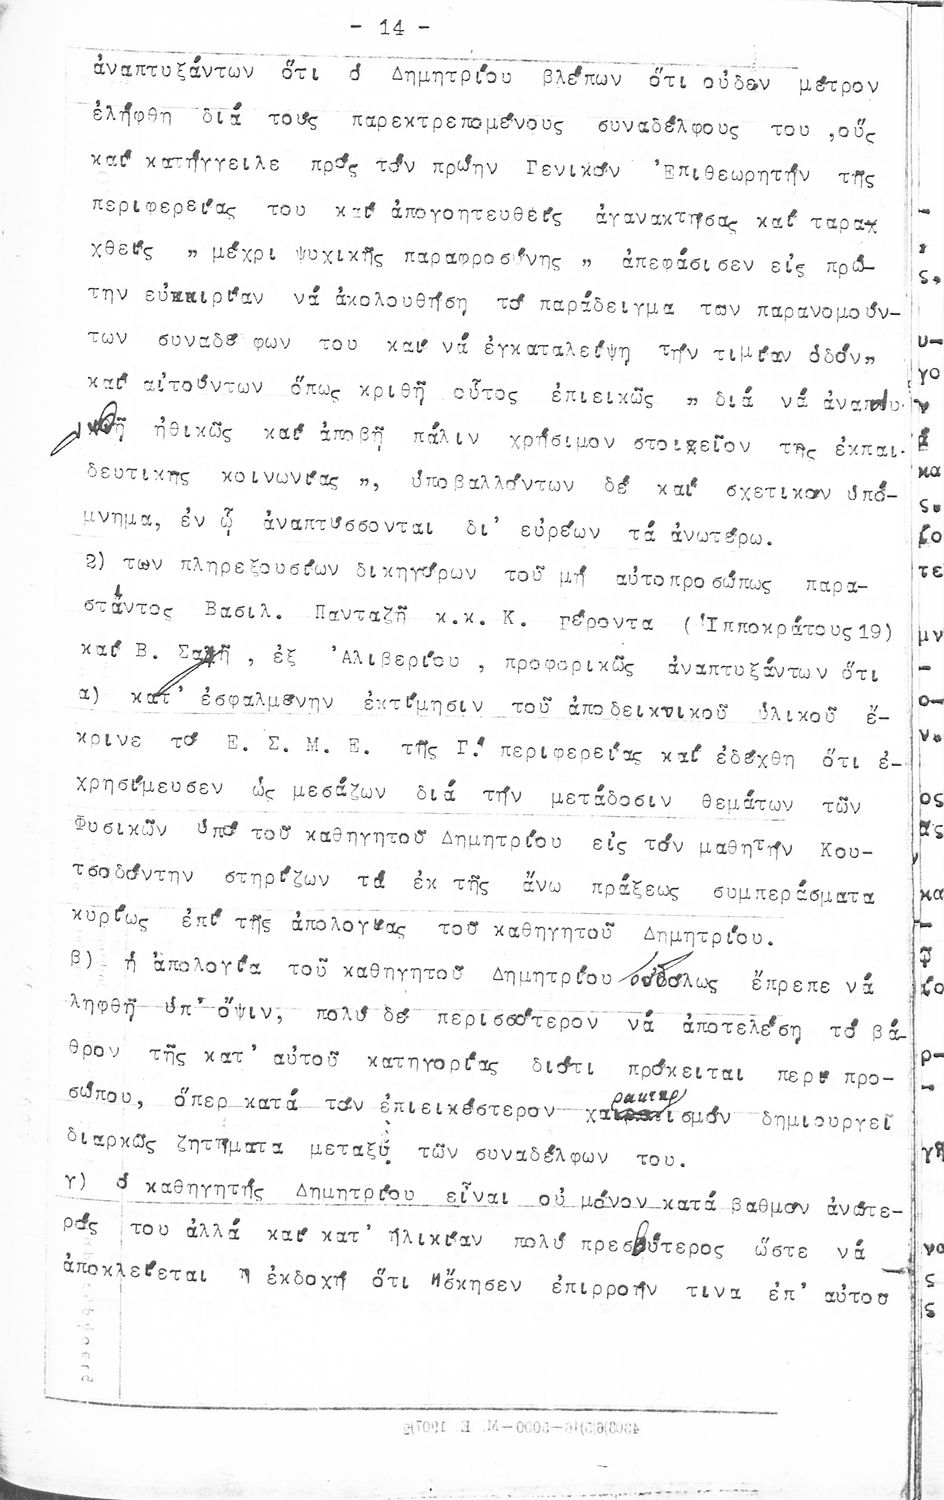 - 14 -
ἀναπτυξάντων ὅτι ὁ Δημητρίου βλέπων ὅτι οὐδέν μέτρον
ἐλήφθη διά τούς παρεκτρεπομένους συναδέλφους του ,οὕς
καί κατήγγειλε πρός τόν πρώην Γενικόν 'Επιθεωρητήν τῆς
περιφερείας του καί ἀπογοητευθείς ἀγανακτήσας καί ταρα
χθείς " μέχρι ψυχικῆς παραφροσύνης " ἀπεφάσισεν εἰς πρώ-
την εὐκαιρίαν νά ἀκολουθήση τό παράδειγμα των παρανομούν-
των συναδέ φων του καί νά ἐγκαταλείψη τήν τιμίαν ὁδόν"
καί αἰτούντων ὅπως κριθῆ οὗτος ἐπιεικῶς " διά νά ἀναπτυ-
χθῆ ἠθικῶς καί ἀποβῆ πάλιν χρήσιμον στοιχεῖον τῆς ἐκπαι-
δευτικῆς κοινωνίας ", ὑποβαλλόντων δέ καί σχετικόν ὑπό-
μνημα, ἐν ᾧ ἀναπτύσσονται δι' εὐρέων τά ἀνωτέρω.
2) των πληρεξουσίων δικηγόρων τοῦ μή αὐτοπροσώπως παρα-
στάντος Βασιλ. Πανταζῆ κ.κ. Κ. Γέροντα ('Ιπποκράτους 19)
καί Β. , ἐξ 'Αλιβερίου , προφορικῶς ἀναπτυξάντων ὅτι
α) κατ' ἐσφαλμένην ἐκτίμησιν τοῦ ἀποδεικτικοῦ ὑλικοῦ ἔ-
κρινε τό Ε. Σ. Μ. Ε. τῆς Γ.' περιφερείας καί ἐδέχθη ὅτι ἐ-
χρησίμευσεν ὡς μεσάζων διά τήν μετάδοσιν θεμάτων τῶν
Φυσικῶν ὑπό τοῦ καθηγητοῦ Δημητρίου εἰς τόν μαθητήν Κου-
τσοδόντην στηρίζων τά ἐκ τῆς ἄνω πράξεως συμπεράσματα
κυρίως ἐπί τῆς ἀπολογίας τοῦ καθηγητοῦ Δημητρίου.
β) ἡ ἀπολογία τοῦ καθηγητοῦ Δημητρίου οὐδόλως ἔπρεπε νά
ληφθῆ ὑπ' ὄψιν, πολύ δέ περισσότερον νά ἀποτελέση τό βά-
θρον τῆς κατ' αὐτοῦ κατηγορίας διότι πρόκειται περί προ-
σώπου, ὅπερ κατά τόν ἐπιεικέστερον χαρακτηρισμόν δημιουργεῖ
διαρκῶς ζητήματα μεταξύ τῶν συναδέλφων του.
γ) ὁ καθηγητής Δημητρίου εἶναι οὐ μόνον κατά βαθμόν ἀνώτε-
ρός του ἀλλά καί κατ' ἡλικίαν πολύ πρεσβύτερος ὥστε νά
ἀποκλείεται ἡ ἐκδοχή ὅτι ἤσκησεν ἐπιρροήν τινα ἐπ' αὐτοῦ